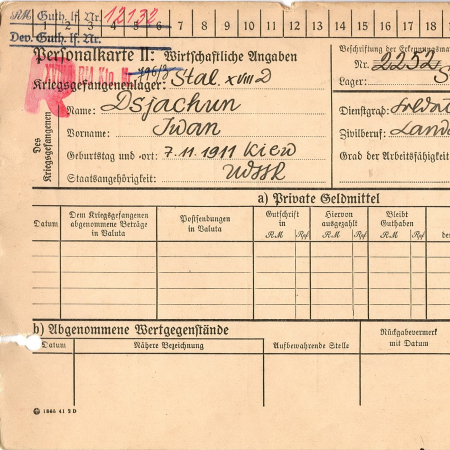 RM Guth. lf. Nr. 12132
1 2 3 4 5 6 7 8 9 10 11 12 13 14 15 16 17 18
Dev. Guth. lf. Nr.
Personalkarte II: Wirtschaftliche Angaben
Beschriftung der Erkennungsma
Kriegsgefangenenlager: Stal. XVIII D
Nr. 2252
Lager: S
Des Kriegsgefangenen
Name: Dsjachun
Dienstgrad: Soldat
Vorname: Iwan
Zivilberuf: Landw
Geburtstag und -ort: 7.11.1911 Kiew
Grad der Arbeitsfähigkeit
Staatsangehörigkeit:
a) Private Geldmittel
Datum
Dem Kriegsgefangenen abgenommene Beträge in Valuta
Postsendungen in Valuta
Gutschrift in RM Rpf
Hiervon ausgezahlt RM Rpf
Bleibt Guthaben RM Rpf
b) Abgenommene Wertgegenstände
Rückgabevermerk mit Datum
Datum
Nähere Bezeichnung
Aufbewahrende Stelle
1866 41 2 D